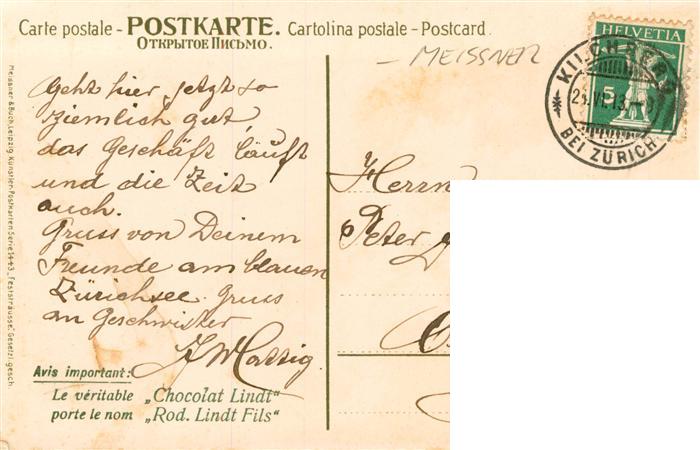 Carte postale - POSTKARTE. Cartolina postale - Postcard.
ОТКРЫТОЕ ПИСЬМО.
- MEISSNER
HELVETIA
5
KILCHBERG
BEI ZÜRICH
Geht hier jetzt so
ziemlich gut
das Geschäft läuft
und die Zeit
auch.
Gruss von Deinem
Freunde am blauen
Zürichsee. Gruss
an Geschwister
Herrn
Peter
Avis important:
Le véritable „Chocolat Lindt"
porte le nom „Rod. Lindt Fils"
Meissner & Buch, Leipzig. Künstler-Postkarten Serie 1443. „Feststräusse." Gesetzl. gesch.